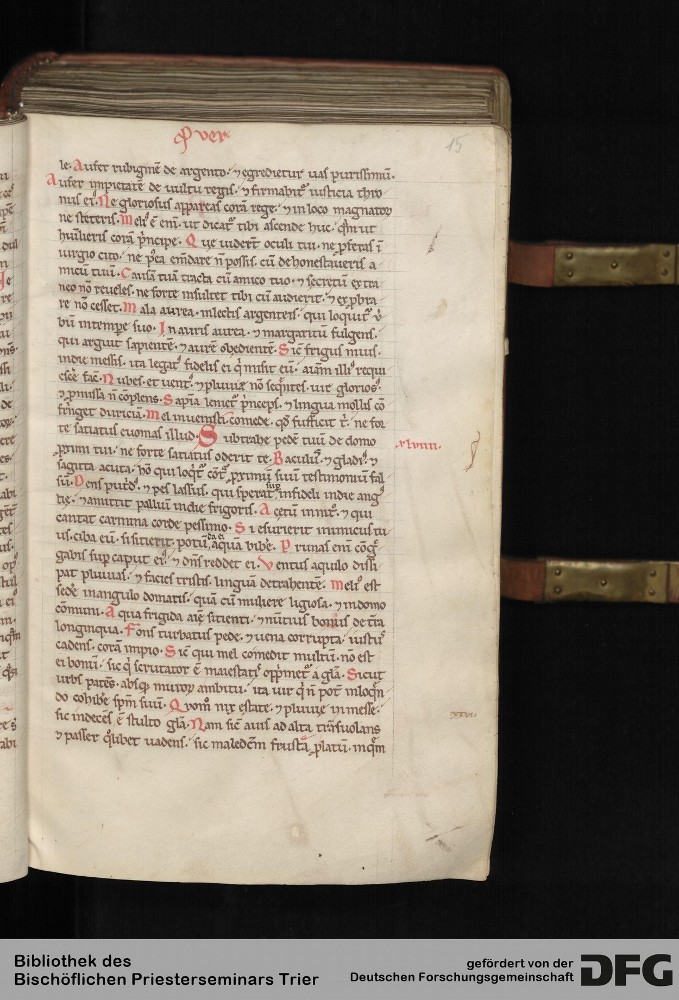 Prouer
15
le. Aufer rubiginē de argento. ⁊ egredietur uas purissimū.
Aufer īmpietatē de uultu regis. ⁊ firmabitᷣ iusticia thro
nus eiꝰ. Ne gloriosus appareas corā rege. ⁊ in loco magnatoꝝ
ne steteris. Meliꝰ ē enī. ut dicatᷣ tibi ascende huc. qͣm ut
humilieris corā pͥncipe. Que uiderūt oculi tui. ne ꝓferas ī
iurgio cito. ne p̄ea em̄dare ñ possis. cū dehonestaueris a
micū tuū. Causā tuā tracta cū amico tuo. ⁊ secretū extra
neo nō reueles. ne forte insultet tibi cū audierit. ⁊ exp̱bra
re nō cesset. Mala aurea. in lectis argenteis. qui loquitᷣ ū̇
bū in tempe suo. Inauris aurea. ⁊ margaritū fulgens.
qui arguit sapientē. ⁊ aurē obedientē. Sic frigus niuis.
in die messis. ita legatꝰ fidelis ei qͥ misit eū. aīam illiꝰ requi
escē̇ fac̄. Nubes. et uentꝰ. ⁊ pluuię nō seqͣntes. uir gloriosꝰ.
⁊ ꝓmissa ñ cōplens. Sapīa lenietᷣ pͥnceps. ⁊ lingua mollis cō
fringet duriciā. Mel inuenisti comede. qd̄ sufficit t̄. ne for
te satiatus euomas illud. Subtrahe pedē tuū de domo
xlviiii.
ꝓximi tui. ne forte satiatus oderit te. Baculū. ⁊ gladiꝰ. ⁊
sagitta acuta. hō qui loqͥtᷣ cōtͣ ꝓximū suū testimoniū fal
sū. Dens putdꝰ. ⁊ pes lassus. qui sperat sup infideli in die angꝰ
tię. ⁊ amittit palliū in die frigoris. Acetū in nitꝰ. ⁊ qui
cantat carmina corde pessimo. Si esurierit inimicus tu
us. ciba eū. si sitierit. potū da ei aquā bibē̇. Prunas enī cōgͤ
gabis sup caput eiꝰ. ⁊ dn̄s reddet ei. Ventus aquilo dissi
pat pluuias. ⁊ facies tristis. linguā detrahentē. Meliꝰ est
sedē̇ in angulo domatis. quā cū muliere litigiosa. ⁊ in domo
cōmuni. Aqua frigida aīę sitienti. ⁊ nūtius bonus de tr̄a
longinqua. Fons turbatus pede. ⁊ uena corrupta. iustus
cadens. corā impio. Sic̄ qui mel comedit multū. nō est
ei bonū. sic qͥ scrutator ē maiestatꝭ. opp̄metᷣ a gl̄a. Sicut
urbs patēs. absqꝫ muroꝝ ambitu. ita uir qͥ ñ pot̄ in loqn̄
do cohibē̇ sp̄m suū. Quom̊ nix estate. ⁊ pluuię in messe.
sic indecēs ē stulto gl̄a. Nam sic̄ auis ad alta trāsuolans
xxvi
⁊ passer qͦlibet uadens. sic maledictū frustra ꝓlatū. in qͣm
Bibliothek des
Bischöflichen Priesterseminars Trier
gefördert von der
Deutschen Forschungsgemeinschaft
DFG